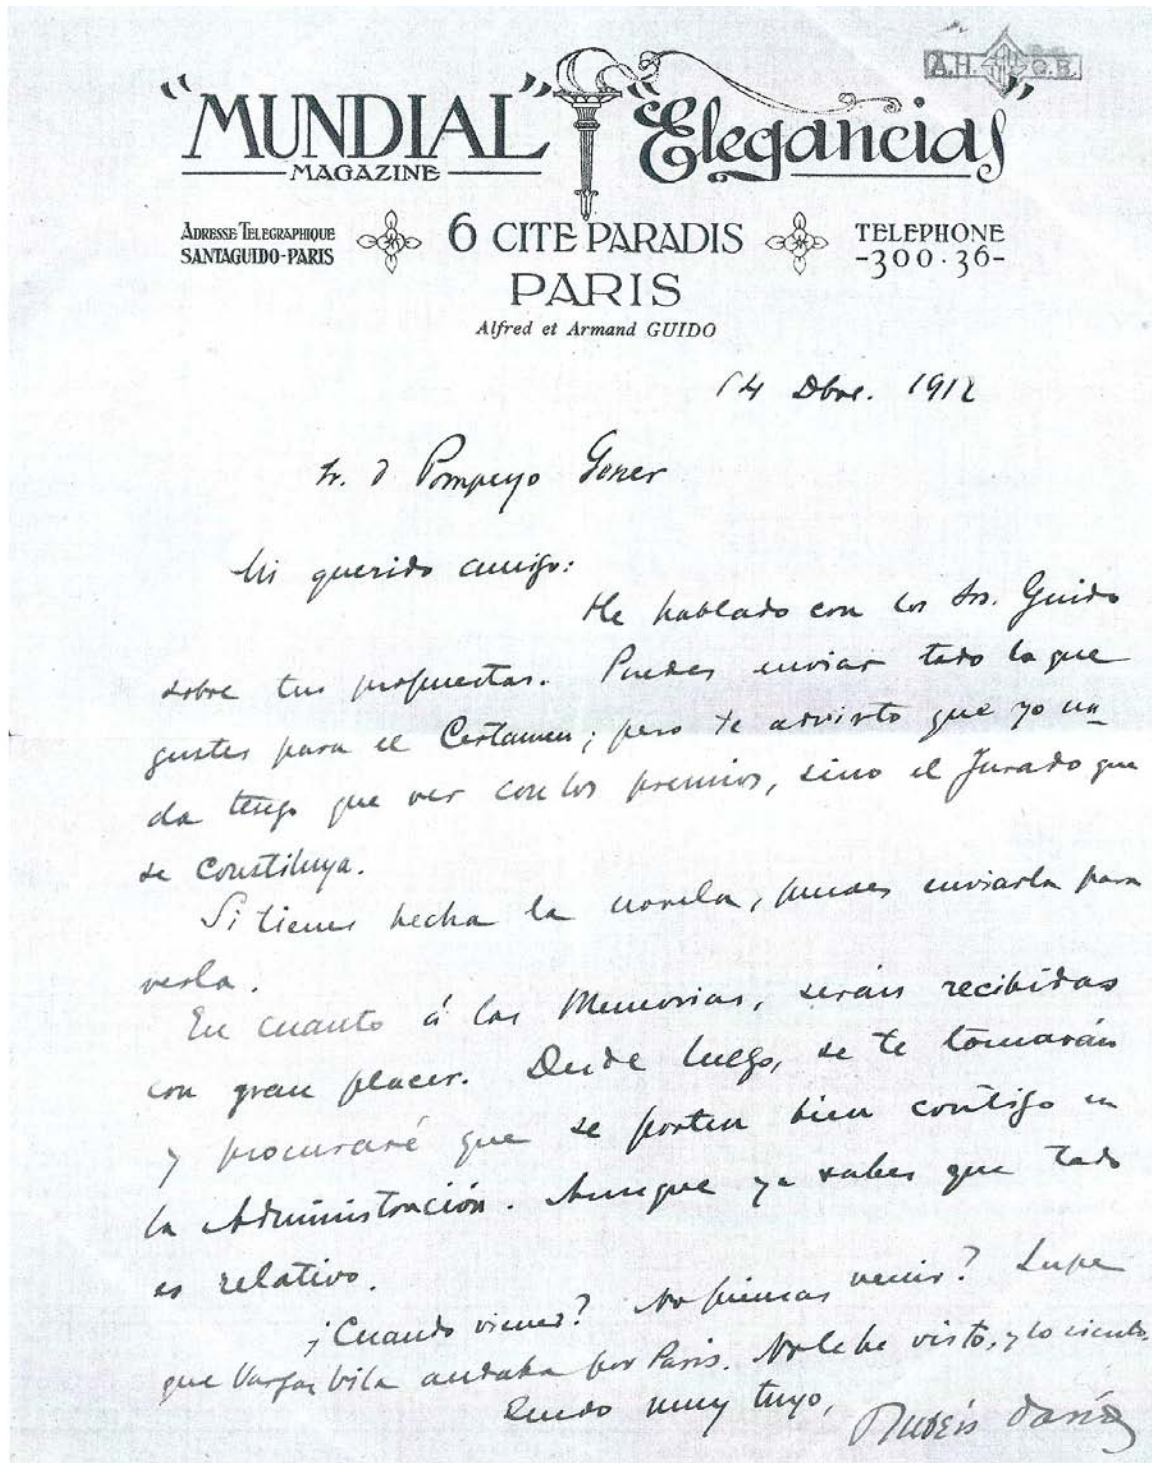 A.H. C.B.
"MUNDIAL" "Elegancias"
MAGAZINE
ADRESSE TELEGRAPHIQUE
SANTAGUIDO-PARIS
6 CITE PARADIS
PARIS
TELEPHONE
-300.36-
Alfred et Armand GUIDO
14 Dbre. 1912
Sr. D Pompeyo Gener
Mi querido amigo:
He hablado con los Srs. Guido
sobre tus propuestas. Puedes enviar todo lo que
gustes para el Certamen; pero te advierto que yo na-
da tengo que ver con los premios, sino el Jurado que
se constituya.
Si tienes hecha la novela, puedes enviarla para
verla.
En cuanto á las Memorias, serán recibidas
con gran placer. Desde luego, se te tomarán
y procuraré que se porten bien contigo en
la Administración. Aunque ya sabes que todo
es relativo.
¿Cuando vienes? No piensas venir? Supe
que Vargas Vila andaba por Paris. No le he visto, y lo siento.
Quedo muy tuyo,
Rubén Darío